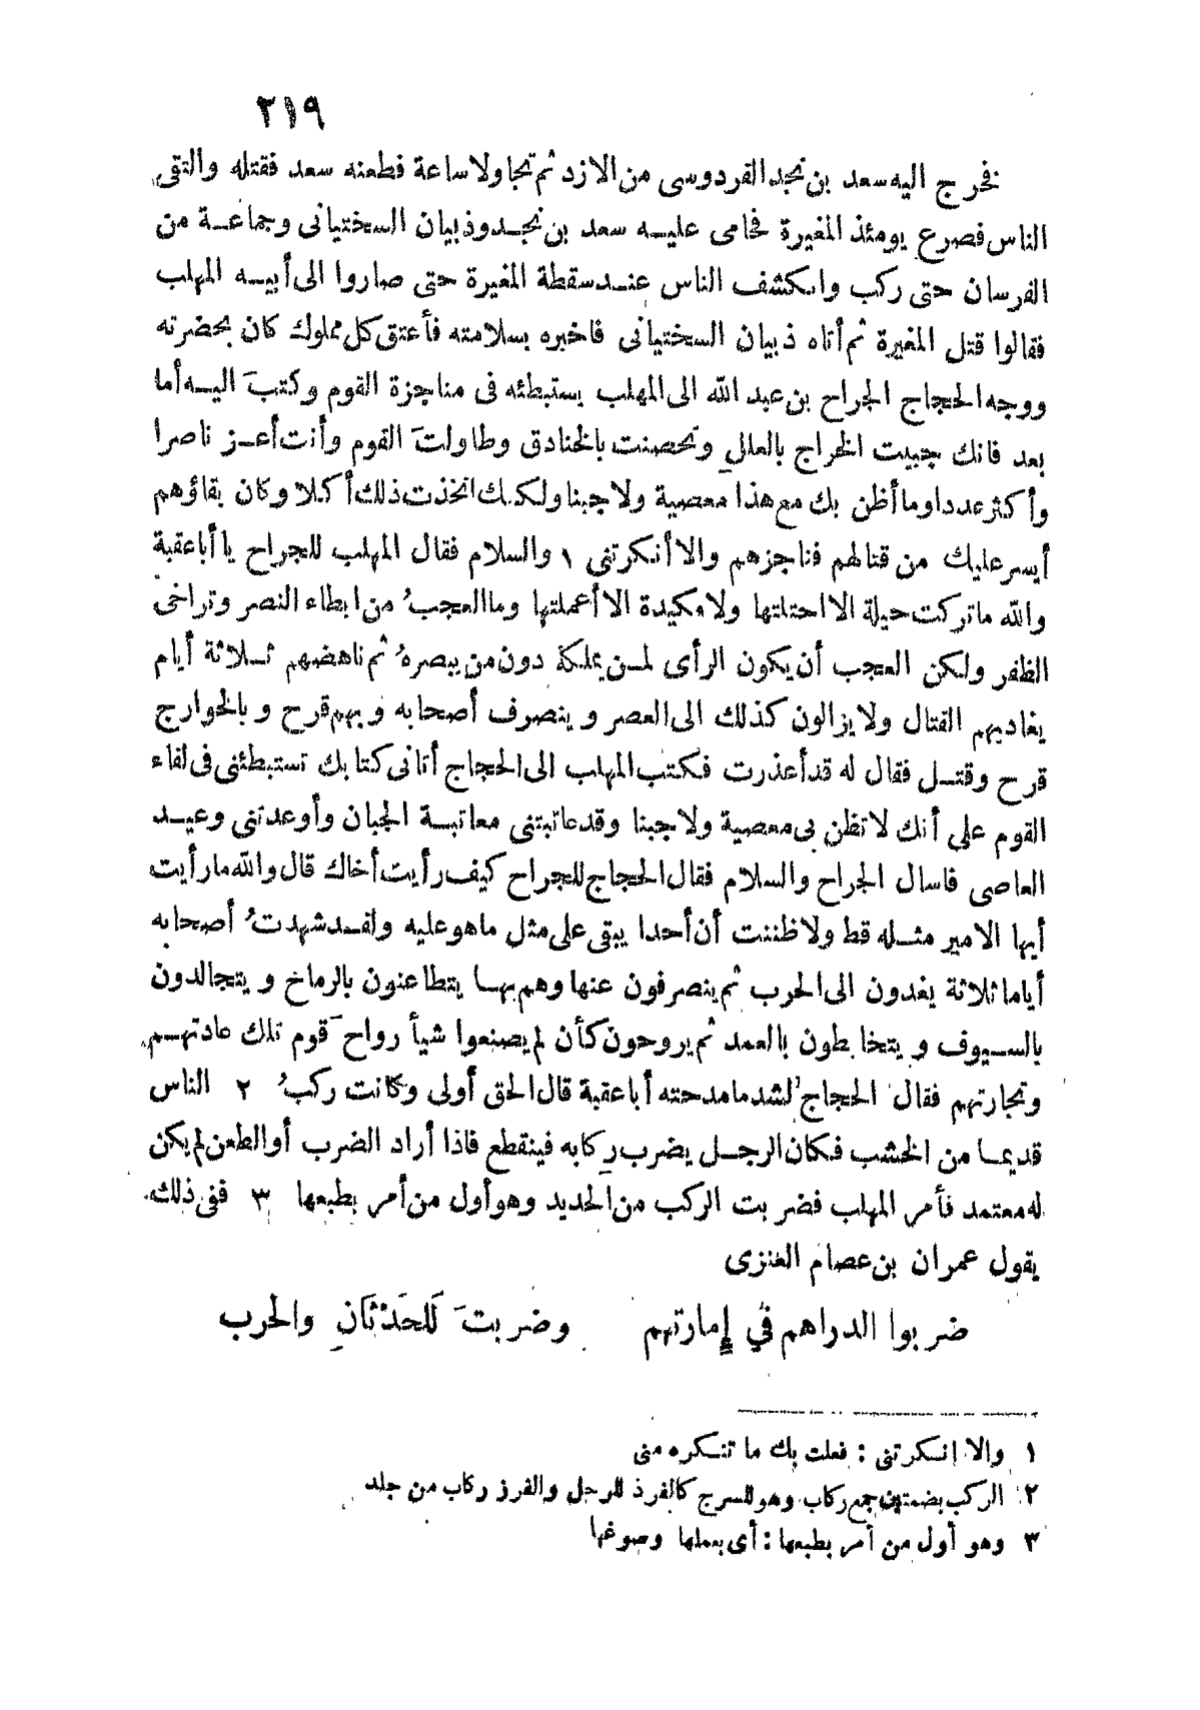 ٢١٩
فخرج اليه سعد بن نجد القردوسى من الازد ثم تجاولا ساعة فطعنه سعد فقتله والتقى
الناس فصرع يومئذ المغيرة فحامى عليه سعد بن نجد وذبيان السختيانى وجماعة من
الفرسان حتى ركب وانكشف الناس عند سقطة المغيرة حتى صاروا الى أبيه المهلب
فقالوا قتل المغيرة ثم أتاه ذبيان السختيانى فاخبره بسلامته فأعتق كل مملوك كان بحضرته
ووجه الحجاج الجراح بن عبد الله الى المهلب يستبطئه فى مناجزة القوم وكتبَ اليه أما
بعد فانك جبيت الخراج بالعلل وتحصنت بالخنادق وطاولتَ القوم وأنت أعز ناصرا
وأكثر عددا وما أظن بك مع هذا معصية ولا جبنا ولكنك اتخذت ذلك أكلا وكان بقاؤهم
أيسر عليك من قتالهم فناجزهم والا أنكرتنى ١ والسلام فقال المهلب للجراح يا أبا عقبة
والله ما تركت حيلة الا احتلتها ولا مكيدة الا أعملتها وما العجبُ من ابطاء النصر وتراخى
الظفر ولكن العجب أن يكون الرأى لمن يملكه دون من يبصرهُ ثم ناهضهم ثلاثة أيام
يغاديهم القتال ولا يزالون كذلك الى العصر وينصرف أصحابه وبهم قرح وبالخوارج
قرح وقتل فقال له قد أعذرت فكتب المهلب الى الحجاج أتانى كتابك تستبطئنى فى لقاء
القوم على أنك لا تظن بى معصية ولا جبنا وقد عاتبتنى معاتبة الجبان وأوعدتنى وعيد
العاصى فاسال الجراح والسلام فقال الحجاج للجراح كيف رأيت أخاك قال والله ما رأيت
أيها الامير مثله قط ولا ظننت أن أحدا يبقى على مثل ما هو عليه ولقد شهدتُ أصحابه
أياما ثلاثة يغدون الى الحرب ثم ينصرفون عنها وهم بها يتطاعنون بالرماح ويتجالدون
بالسيوف ويتخابطون بالعمد ثم يروحون كأن لم يصنعوا شيأ رواحَ قوم تلك عادتهم
وتجارتهم فقال الحجاج لشد ما مدحته أبا عقبة قال الحق أولى وكانت ركبُ ٢ الناس
قديما من الخشب فكان الرجل يضرب ركابه فينقطع فاذا أراد الضرب أو الطعن لم يكن
له معتمد فأمر المهلب فضربت الركب من الحديد وهو أول من أمر بطبعها ٣ ففى ذلك
يقول عمران بن عصام العنزى
ضربوا الدراهم في إمارتهم وضربتَ لَلحَدْثَانِ والحرب
١ والا إنكرتنى : فعلت بك ما تنكره منى
٢ الركب بضمتين جمع ركاب وهو للسرج كالغرز للرحل والغرز ركاب من جلد
٣ وهو أول من أمر بطبعها : أى بعملها وصوغها